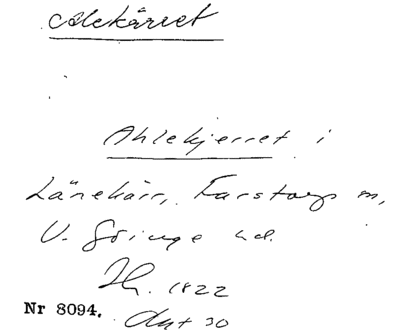 Alekärret
Ahlekjerret i
Länekärr, Farstorps sn,
V. Göinge hd.
1822
Nr 8094.
Akt 30